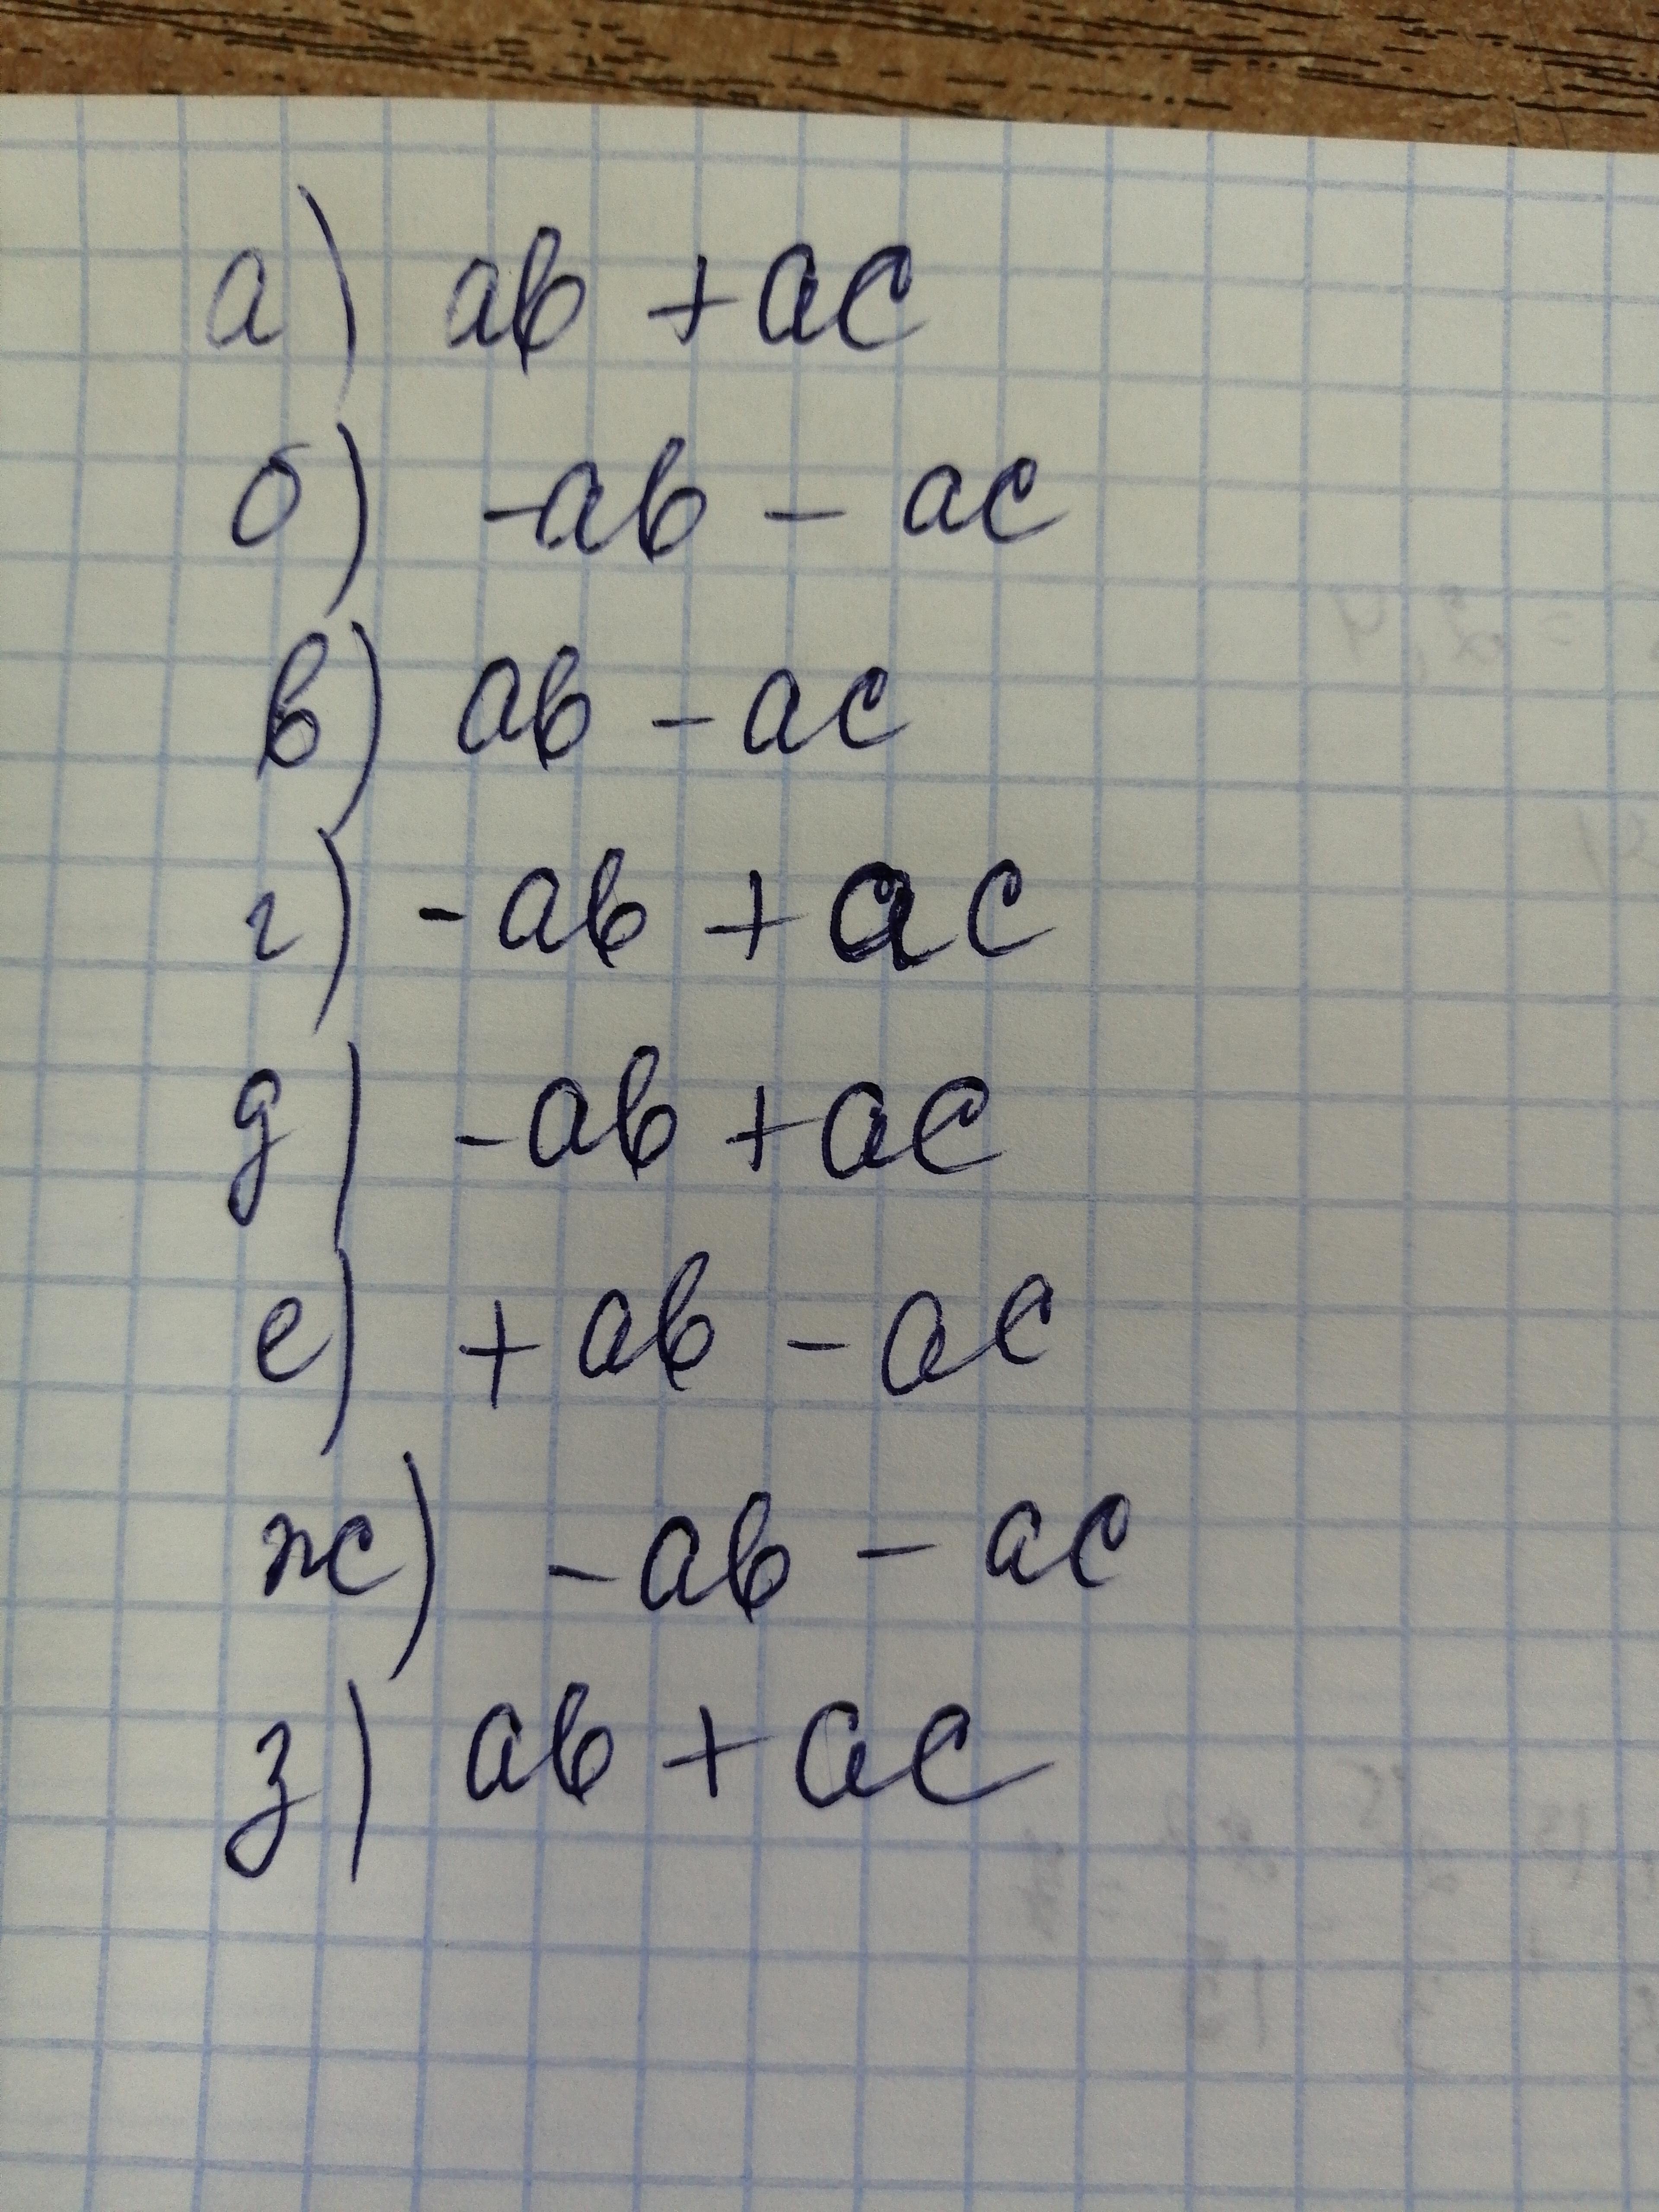 а) ab + ac
б) -ab - ac
в) ab - ac
г) -ab + ac
д) -ab + ac
е) +ab - ac
ж) -ab - ac
з) ab + ac